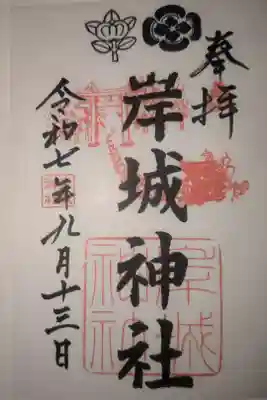 奉拝
岸城神社
令和七年九月十三日